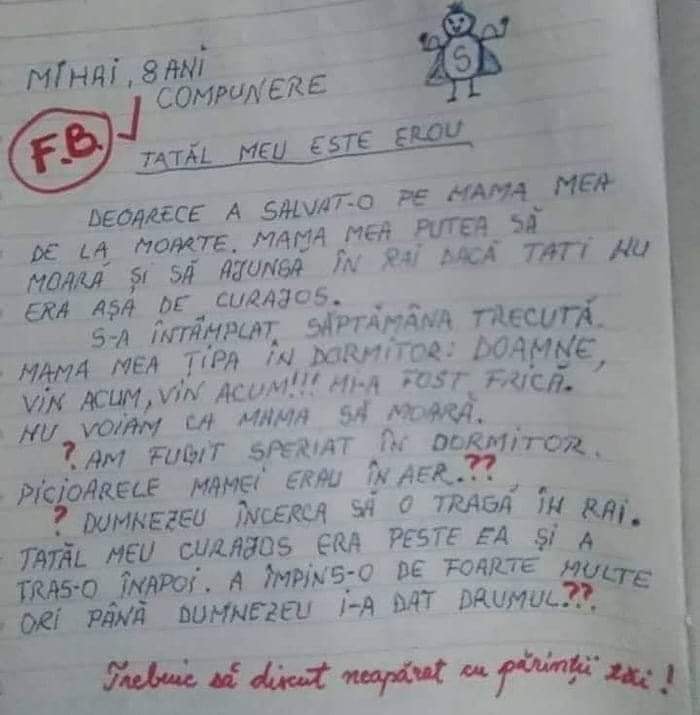 MIHAI, 8 ANI
COMPUNERE
S
F.B.
TATĂL MEU ESTE EROU
DEOARECE A SALVAT-O PE MAMA MEA
DE LA MOARTE. MAMA MEA PUTEA SĂ
MOARĂ ȘI SĂ AJUNGA ÎN RAI DACĂ TATI NU
ERA AȘA DE CURAJOS.
S-A ÎNTÂMPLAT SĂPTĂMÂNA TRECUTĂ.
MAMA MEA ȚIPA ÎN DORMITOR: DOAMNE,
VIN ACUM, VIN ACUM!!! MI-A FOST FRICĂ.
NU VOIAM CA MAMA SĂ MOARĂ.
? AM FUGIT SPERIAT ÎN DORMITOR.
PICIOARELE MAMEI ERAU ÎN AER.??
? DUMNEZEU ÎNCERCA SĂ O TRAGĂ ÎN RAI.
TATĂL MEU CURAJOS ERA PESTE EA ȘI A
TRAS-O ÎNAPOI. A ÎMPINS-O DE FOARTE MULTE
ORI PÂNĂ DUMNEZEU I-A DAT DRUMUL.??
Trebuie să discut neapărat cu părinții tăi!